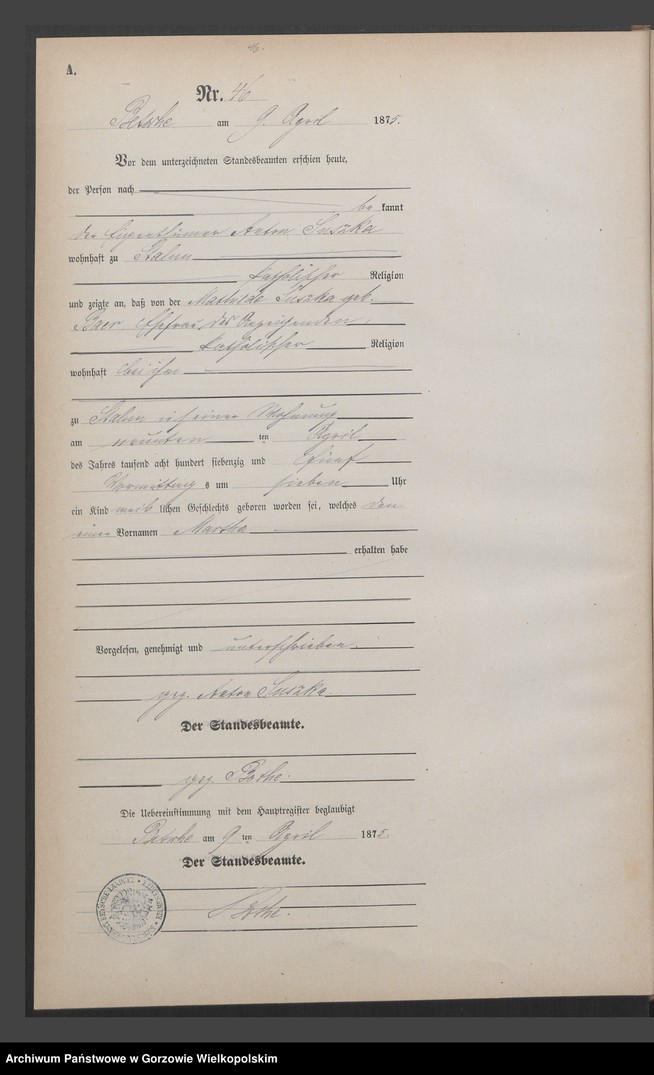 46.
A.
Nr. 46
am 9. April 1875.
Vor dem unterzeichneten Standesbeamten erschien heute,
der Person nach
be kannt
der Eigenthümer Anton Suszka
wohnhaft zu Stalun
katholischer Religion
und zeigte an, daß von der Mathilde Suszka geb.
Baer, Ehefrau des Anzeigenden,
katholischer Religion
wohnhaft bei ihm
zu Stalun in seiner Wohnung
am neunten ten April
des Jahres tausend acht hundert siebenzig und fünf
Vormittag s um sieben Uhr
ein Kind weib lichen Geschlechts geboren worden sei, welches den
einen Vornamen Martha
erhalten habe
Vorgelesen, genehmigt und unterschrieben.
gez. Anton Suszka
Der Standesbeamte.
gez Bothe.
Die Uebereinstimmung mit dem Hauptregister beglaubigt
am 9 ten April 1875.
Der Standesbeamte.
Bothe.
Archiwum Państwowe w Gorzowie Wielkopolskim